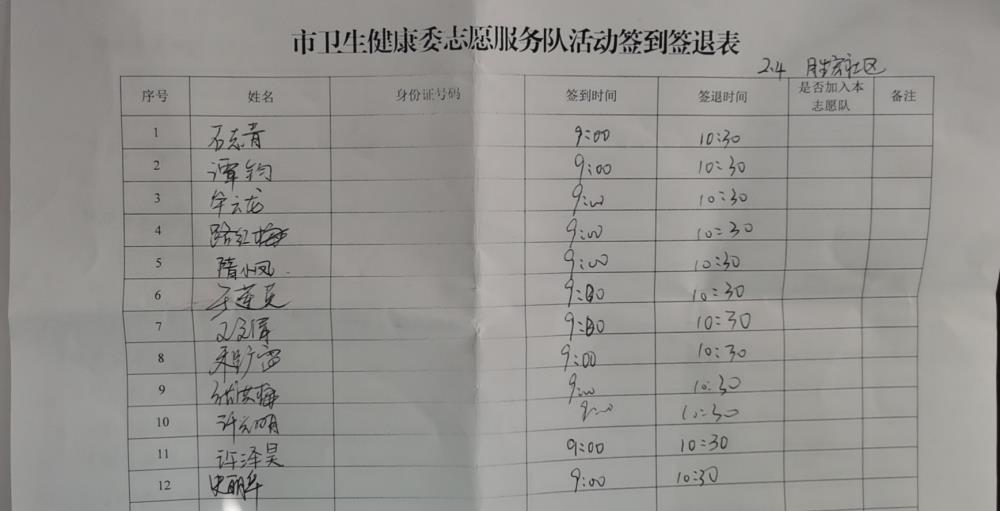 市卫生健康委志愿服务队活动签到签退表
2.4 胜宏社区
序号 姓名 身份证号码 签到时间 签退时间 是否加入本志愿队 备注
1 石志青 9:00 10:30
2 谭钧 9:00 10:30
3 牟云龙 9:00 10:30
4 路红梅 9:00 10:30
5 隋小凤 9:00 10:30
6 于莲英 9:00 10:30
7 9:00 10:30
8 9:00 10:30
9 9:00 10:30
10 许光明 9:00 10:30
11 许泽昊 9:00 10:30
12 史丽华 9:00 10:30